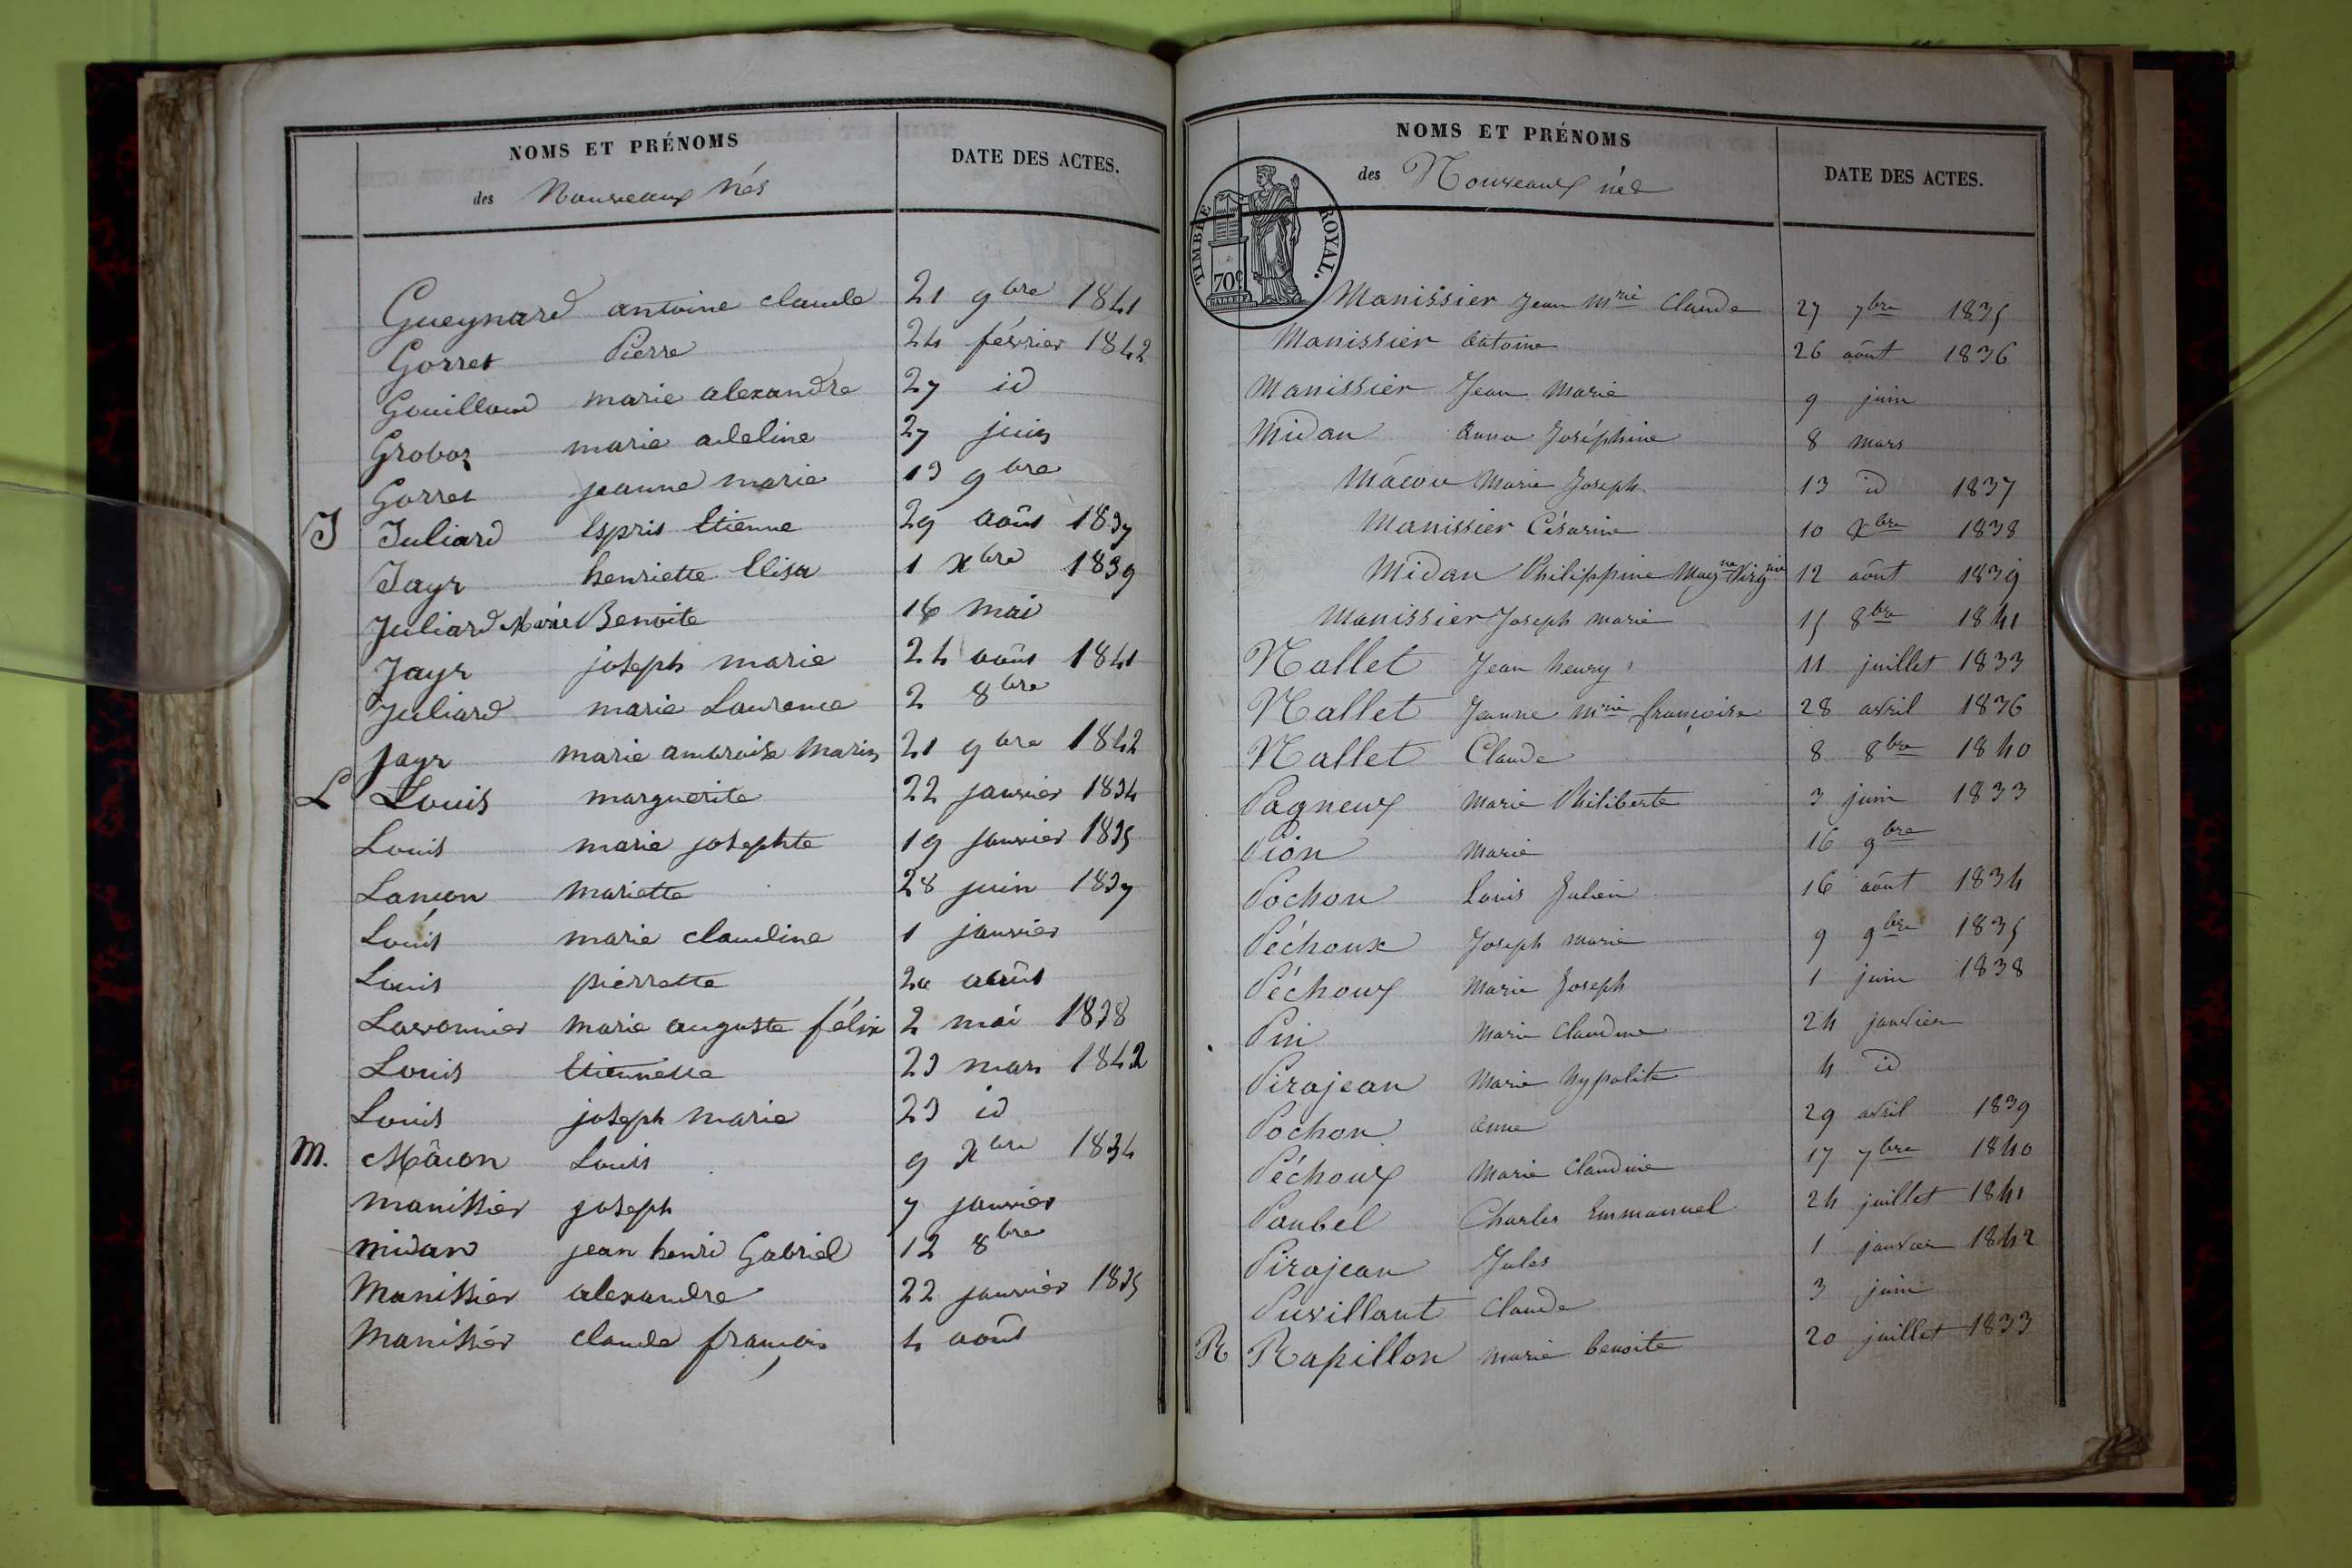 NOMS ET PRÉNOMS
des Nouveaux nés
DATE DES ACTES.
Gueynard antoine claude 21 9bre 1841
Gorret Pierre 24 février 1842
Gouilloud marie alexandre 27 id
Groboz marie adeline 27 juin
Gorret jeanne marie 13 9bre
J Juliard Esprit Etienne 29 août 1837
Jayr henriette Elisa 1 Xbre 1839
Juliard Marie Benoite 16 mai
Jayr joseph marie 24 août 1841
Juliard marie Laurence 2 8bre
Jayr marie ambroise Marin 21 9bre 1842
L Louis marguerite 22 janvier 1834
Louis marie josephte 19 janvier 1835
Lancon mariette 28 juin 1837
Louis marie claudine 1 janvier
Louis pierrette 20 août
Lavonnier marie auguste félix 2 mai 1838
Louis Etiennette 23 mars 1842
Louis joseph marie 23 id
M. Mâcon Louis 9 Xbre 1834
manissier joseph 7 janvier
midan jean henri Gabriel 12 8bre
Manissier alexandre 22 janvier 1835
Manissier claude françois 4 août
NOMS ET PRÉNOMS
des Nouveaux nés
DATE DES ACTES.
TIMBRE ROYAL.
70c
Manissier Jean Mrie Claude 27 7bre 1835
Manissier Antoine 26 août 1836
Manissier Jean Marie 9 juin
Midan Anna Joséphine 8 mars
Mâcon Marie Joseph 13 id 1837
Manissier Césarine 10 Xbre 1838
Midan Philippine 12 août 1839
Manissier Joseph marie 15 8bre 1841
Nallet Jean henry 11 juillet 1833
Nallet Jeanne Mrie françoise 28 avril 1836
Nallet Claude 8 8bre 1840
Pagneux Marie Philiberte 3 juin 1833
Pion Marie 16 9bre
Pochon Louis Julien 16 août 1834
Péchoux Joseph Marie 9 9bre 1835
Péchoux Marie Joseph 1 juin 1838
Pin Marie Claudine 24 janvier
Pirajean Marie hypolite 4 id
Pochon anne 29 avril 1839
Péchoux Marie Claudine 17 7bre 1840
Paubel Charles Emmanuel 24 juillet 1841
Pirajean Jules 1 janvier 1842
Puvillant Claude 3 juin
R Rapillon Marie benoite 20 juillet 1833